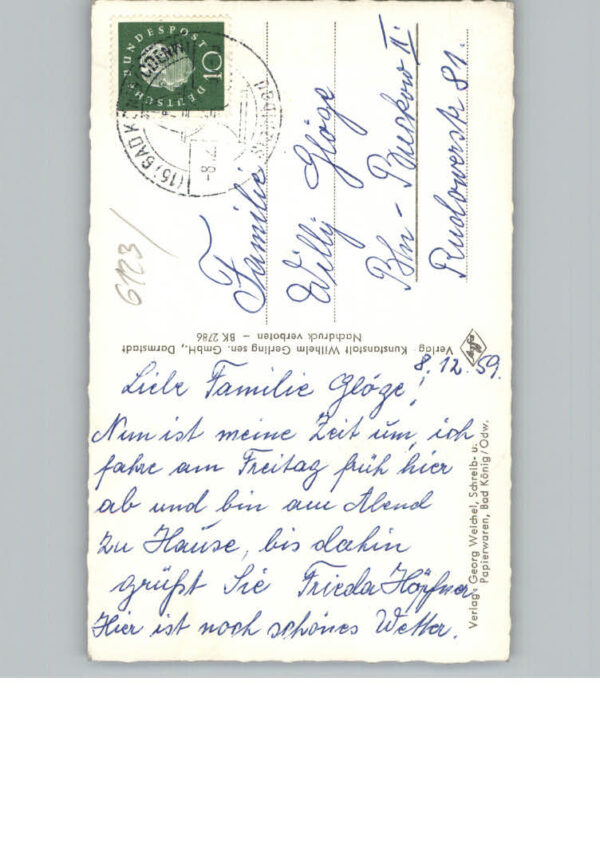 DEUTSCHE BUNDESPOST
10
(16) BAD K
-8.
6123/
Familie
Willy Glöge
Bln - Buckow II.
Rudowerstr 81.
Verlag: Kunstanstalt Wilhelm Gerling sen. GmbH., Darmstadt
Nachdruck verboten - BK 2786
8.12.59.
Liebe Familie Glöge!
Nun ist meine Zeit um, ich
fahre am Freitag früh hier
ab und bin am Abend
zu Hause, bis dahin
grüßt Sie Frieda Höpfner
Hier ist noch schönes Wetter.
Verlag: Georg Weichel, Schreib- u.
Papierwaren, Bad König/Odw.